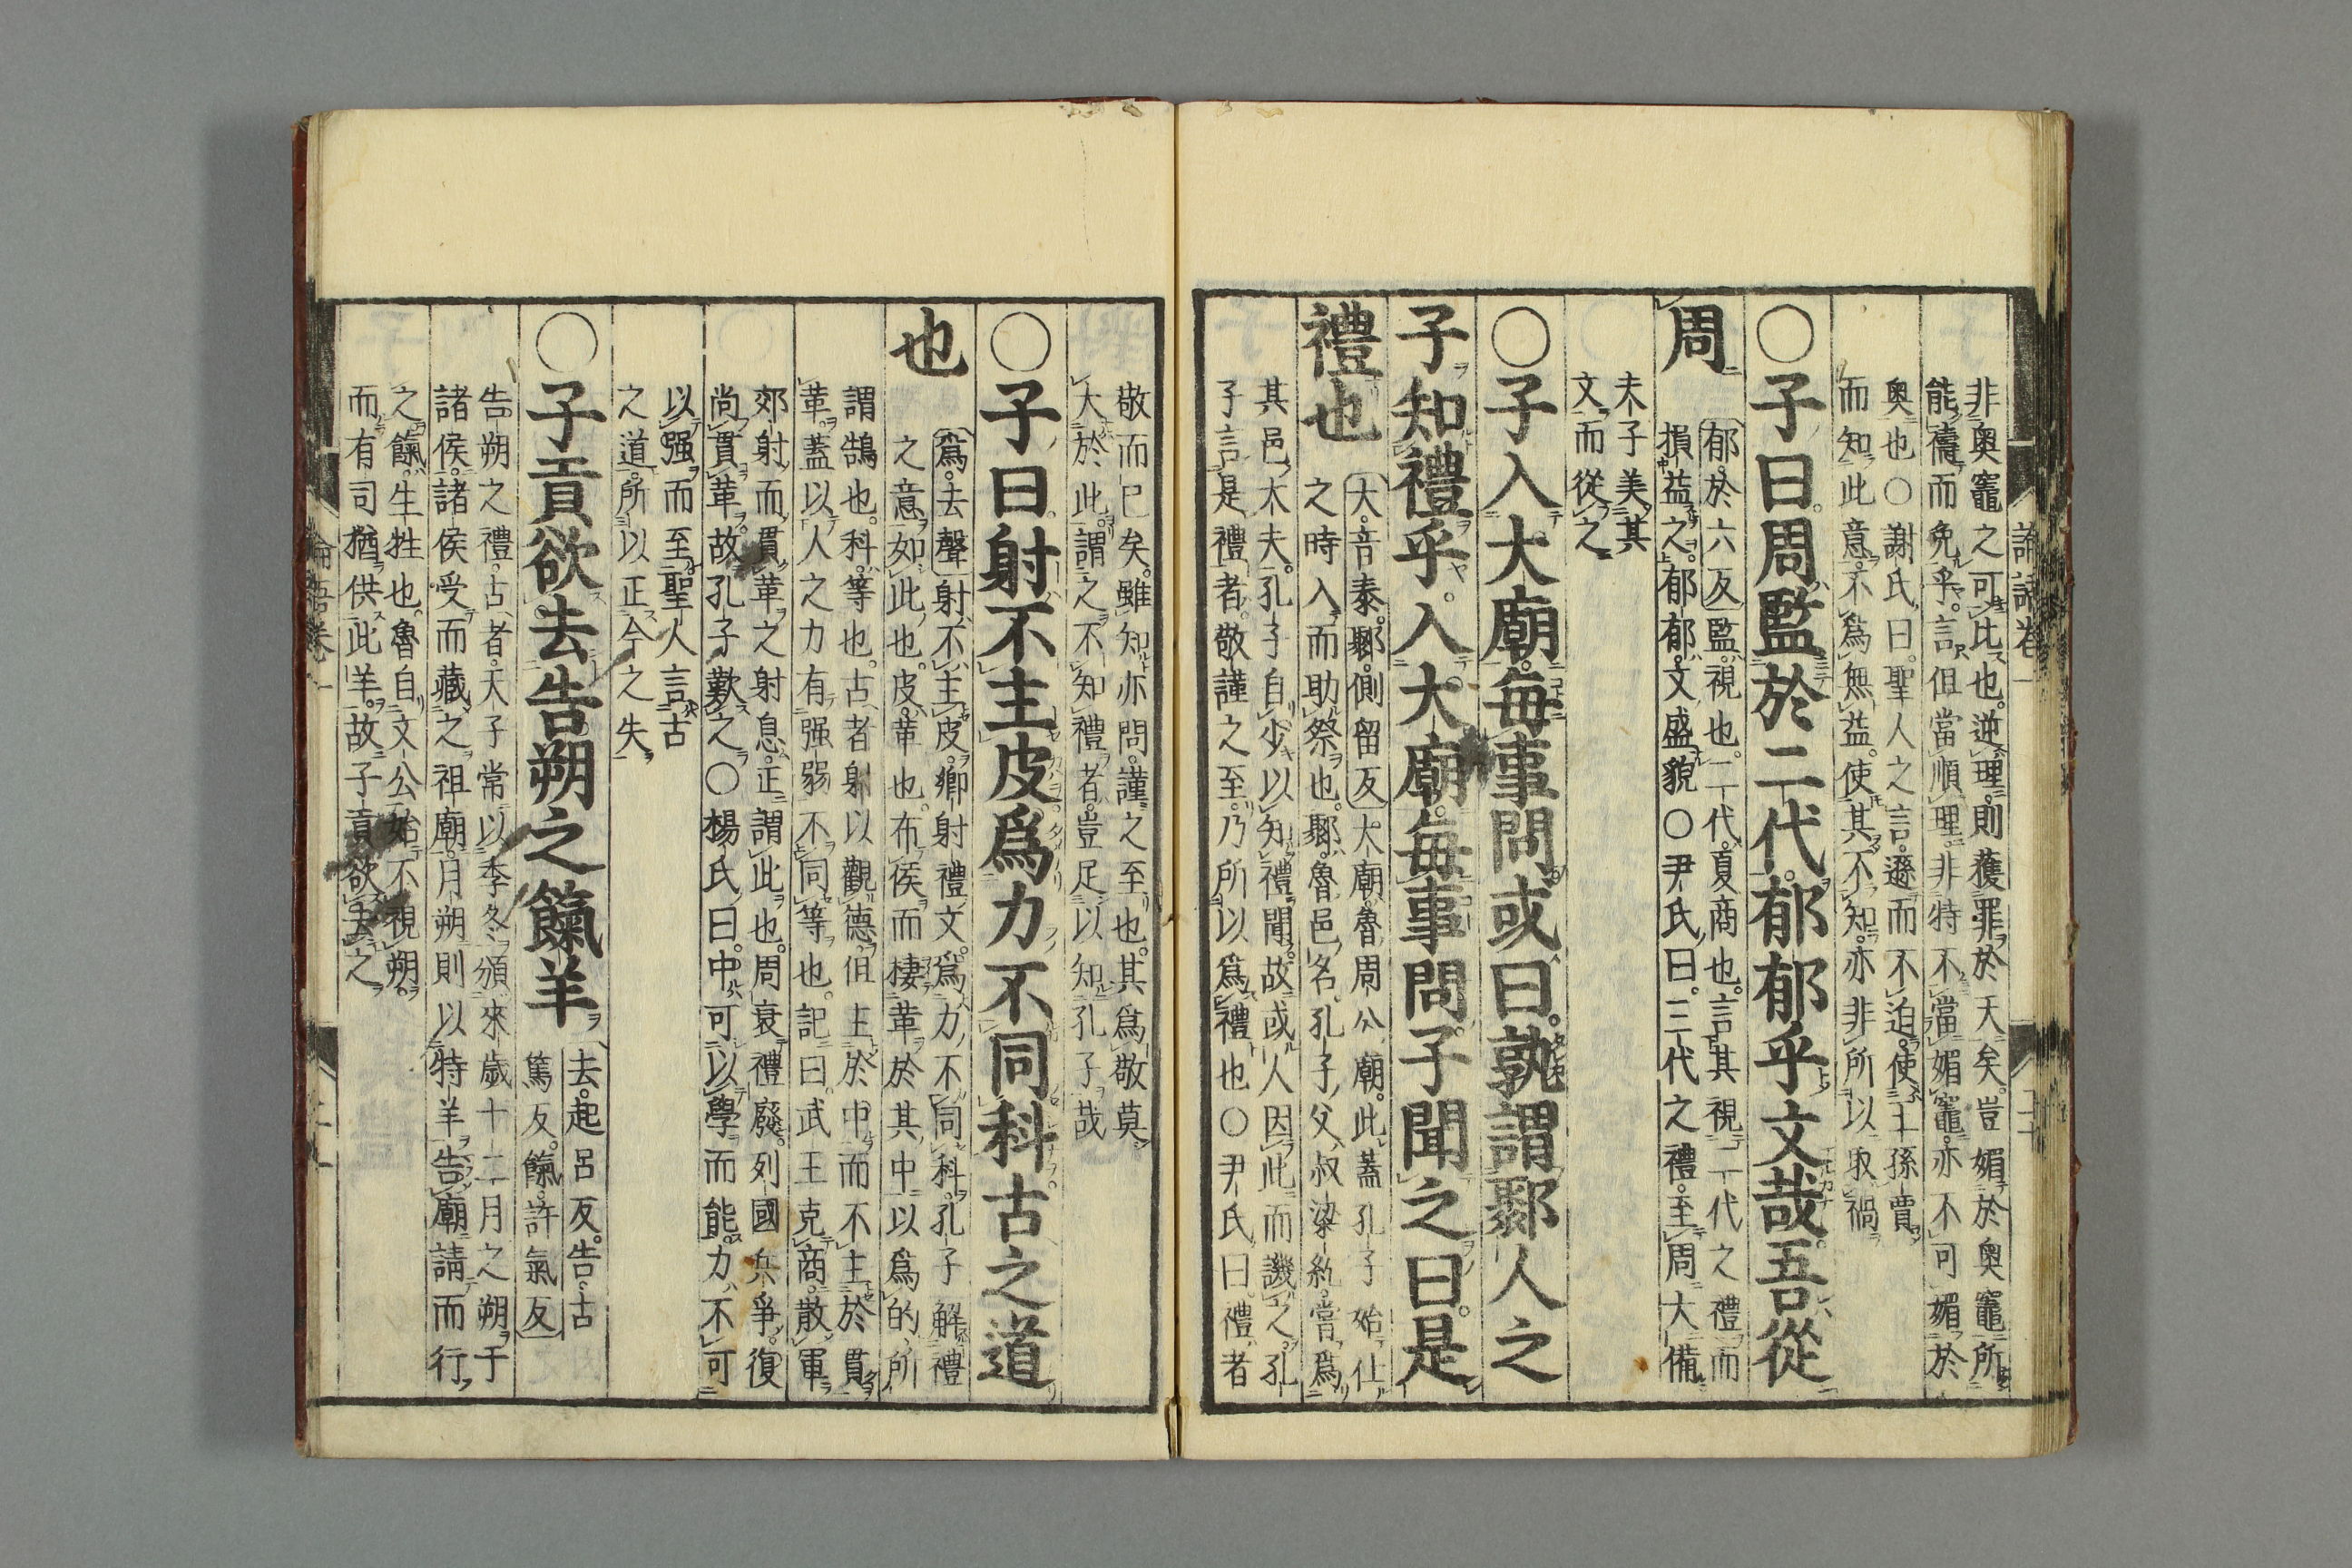 論語卷一
非奧竈之可比也。逆理則獲罪於天矣。豈媚於奧竈所
能禱而免乎。言但當順理。非特不當媚竈。亦不可媚於
奧也○謝氏曰。聖人之言。遜而不迫。使王孫賈
而知此意。不爲無益。使其不知。亦非所以取禍
○子曰。周監於二代。郁郁乎文哉。吾從
周
郁。於六反監。視也。二代。夏商也。言其視二代之禮而
損益之。郁郁。文盛貌○尹氏曰。三代之禮。至周大備
夫子美其
文而從之
○子入大廟。每事問。或曰。孰謂鄹人之
子知禮乎。入大廟。每事問。子聞之曰。是
禮也
大。音泰。鄹。側留反大廟。魯周公廟。此蓋孔子始仕
之時入而助祭也。鄹。魯邑名。孔子父。叔梁紇。嘗爲
其邑大夫。孔子自少以知禮聞。故或人因此而譏之。孔
子言是禮者。敬謹之至。乃所以爲禮也○尹氏曰。禮者
敬而已矣。雖知亦問。謹之至也。其爲敬莫
大於此。謂之不知禮者。豈足以知孔子哉
○子曰。射不主皮。爲力不同科。古之道
也
爲。去聲射不主皮。鄉射禮文。爲力不同科。孔子解禮
之意如此也。皮。革也。布侯而棲革於其中以爲的。所
謂鵠也。科。等也。古者射以觀德。但主於中而不主於貫
革。蓋以人之力有强弱不同等也。記曰。武王克商。散軍
郊射。而貫革之射息。正謂此也。周衰禮廢。列國兵爭。復
尚貫革。故孔子歎之○楊氏曰。中可以學而能。力不可
以强而至。聖人言古
之道。所以正今之失
○子貢欲去告朔之餼羊
去。起呂反。告。古
篤反。餼。許氣反
告朔之禮。古者。天子常以季冬頒來歲十二月之朔于
諸侯。諸侯受而藏之祖廟。月朔則以特羊告廟。請而行
之。餼。生牲也。魯自文公始不視朔。
而有司猶供此羊。故子貢欲去之